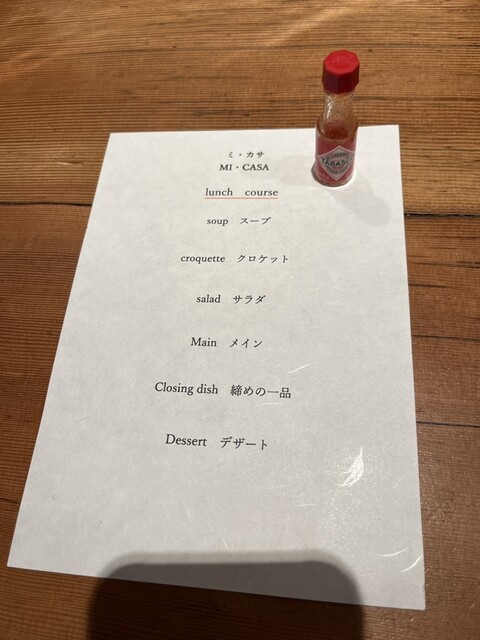 ミ・カサ
MI・CASA
lunch course
soup スープ
croquette クロケット
salad サラダ
Main メイン
Closing dish 締めの一品
Dessert デザート